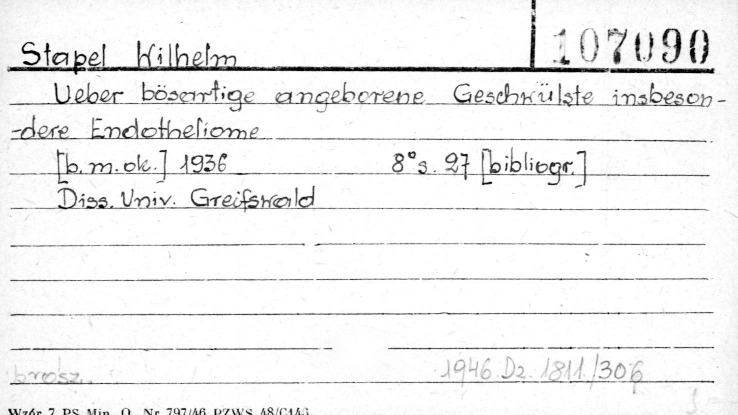 Stapel Wilhelm 107090
Ueber bösartige angeborene Geschwülste insbeson-
-dere Endotheliome
[b.m.ok.] 1936 8°s. 27 [bibliogr.]
Diss. Univ. Greifswald
brosz. 1946 Dz. 1811./306
Wzór 7 PS Min. O. Nr 797/46 PZWS